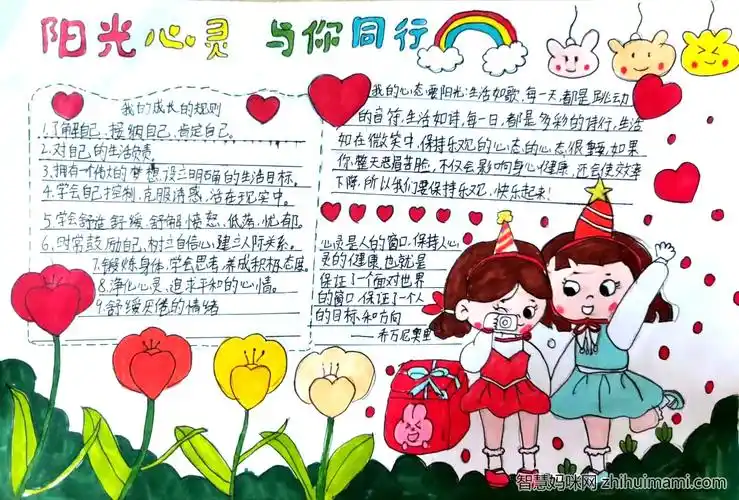 阳光心灵 与你同行
我的成长的规则
1.了解自己,接纳自己,肯定自己。
2.对自己的生活负责
3.拥有个伟大的梦想,设立明确的生活目标。
4.学会自己控制,克服诱惑,活在现实中。
5.学会舒造舒缓,舒解愤怒,低落,忧郁。
6.时常鼓励自己,树立自信心,建立人际关系。
7.锻炼身体,学会思考,养成积极态度。
8.净化心灵,追求平和的心情。
9.舒缓厌倦的情绪
我的心态要阳光:生活如歌,每一天,都是跳动
的音符,生活如诗,每一日,都是多彩的诗行,生活
如在微笑中,保持乐观的心态的心态,很重要,如果
你,整天愁眉苦脸,不仅会影响身心健康,还会使效率
下降,所以我们要保持乐观,快乐起来!
心灵是人的窗口,保持人心
灵的健康,也就是
保证了一个面对世界
的窗口,保证了一个人
的目标和方向
——乔万尼奥里
智慧妈咪网 zhihuimami.com